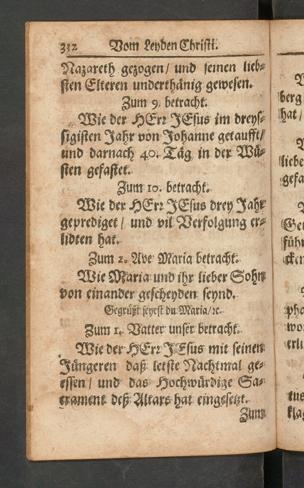 312 Vom Leyden Christi.
Nazareth gezogen/ und seinen lieb-
sten Elteren underthänig gewesen.
Zum 9. betracht.
Wie der HErr JEsus im dreys-
sigisten Jahr von Johanne getaufft/
und darnach 40. Täg in der Wü-
sten gefastet.
Zum 10. betracht.
Wie der HErr JEsus drey Jahr
geprediget/ und vil Verfolgung er-
lidten hat.
Zum 2. Ave Maria betracht.
Wie Maria und ihr lieber Sohn
von einander gescheyden seynd.
Gegrüßt seyest du Maria/ꝛc.
Zum 1. Vatter unser betracht.
Wie der HErr JEsus mit seinen
Jüngeren daß letste Nachtmal ge-
essen/ und das Hochwürdige Sa-
crament deß Altars hat eingesetzt.
Zum